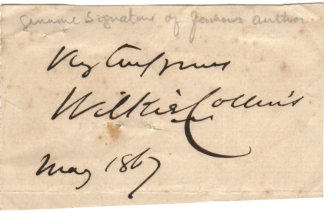 Genuine Signature of famous author.
Very truly yours
Wilkie Collins
May 1867